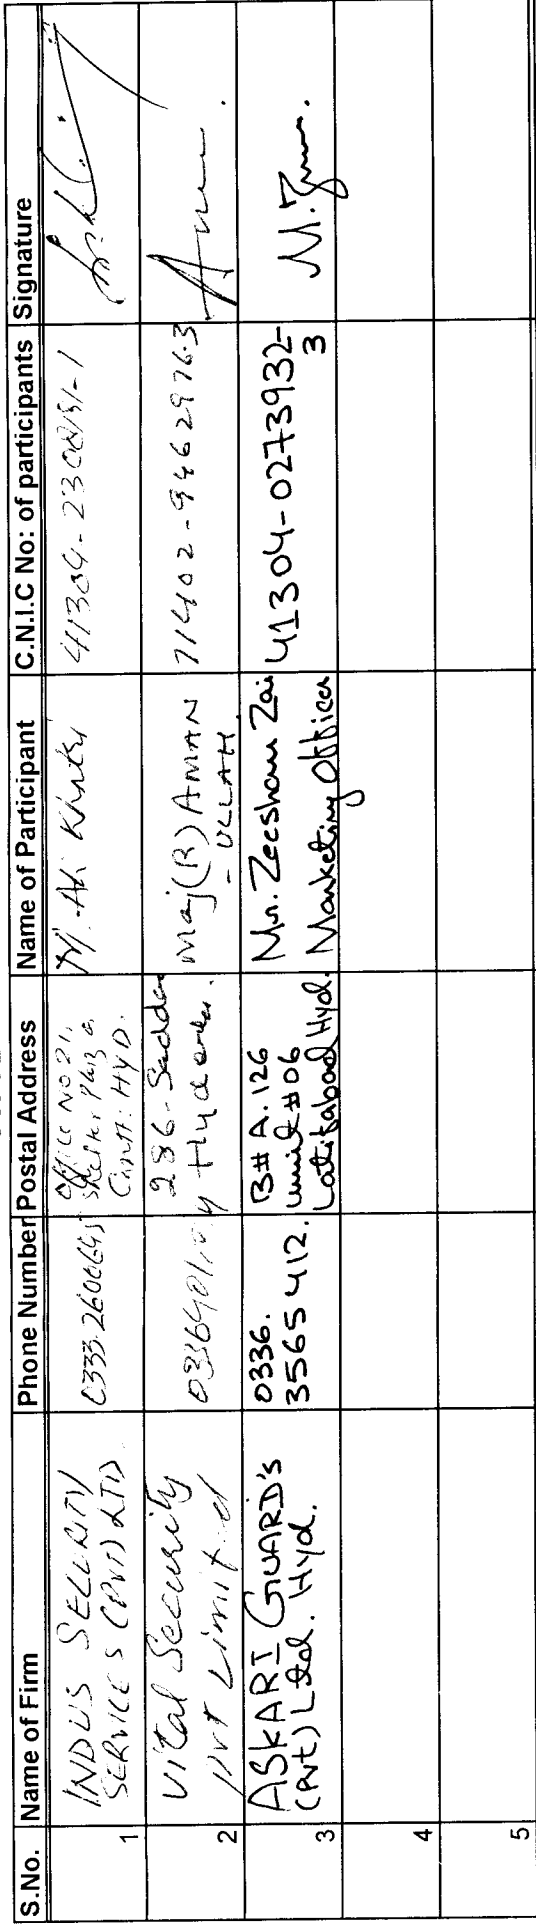 S.No. Name of Firm Phone Number Postal Address Name of Participant C.N.I.C No: of participants Signature
1 INDUS SECURITY
SERVICES (PVT) LTD.
Office No 21,
Shelter Plaza
Cantt: HYD.
M. Ali Khatri
41304-
2 Vital Security
Pvt Limited
286-Saddar
Hyderabad.
Maj(R) AMAN
-ULLAH.
71402-9462976-3
3 ASKARI GUARD'S
(Pvt) Ltd. Hyd.
0336.
3565412.
B# A.126
Unit #06
Latifabad Hyd.
Mr. Zeeshan Zai
Marketing Officer
41304-0273932-
3
4
5